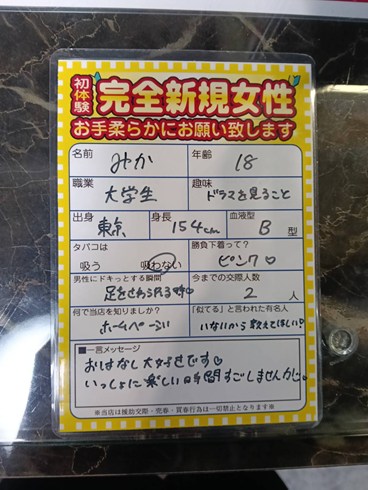 初体験
完全新規女性
お手柔らかにお願い致します
名前 みか 年齢 18
職業 大学生 趣味 ドラマを見ること
出身 東京 身長 154cm 血液型 B 型
タバコは 吸う 吸わない 勝負下着って? ピンク♡
男性にドキっとする瞬間 足をさわられる時♡ 今までの交際人数 2 人
何で当店を知りましたか? ホームページ 「似てる」と言われた有名人 いないから教えてほしい♡
■一言メッセージ
おはなし大好きです♡
いっしょに楽しい時間すごしませんか♡
※当店は援助交際・売春・買春行為は一切禁止となります※